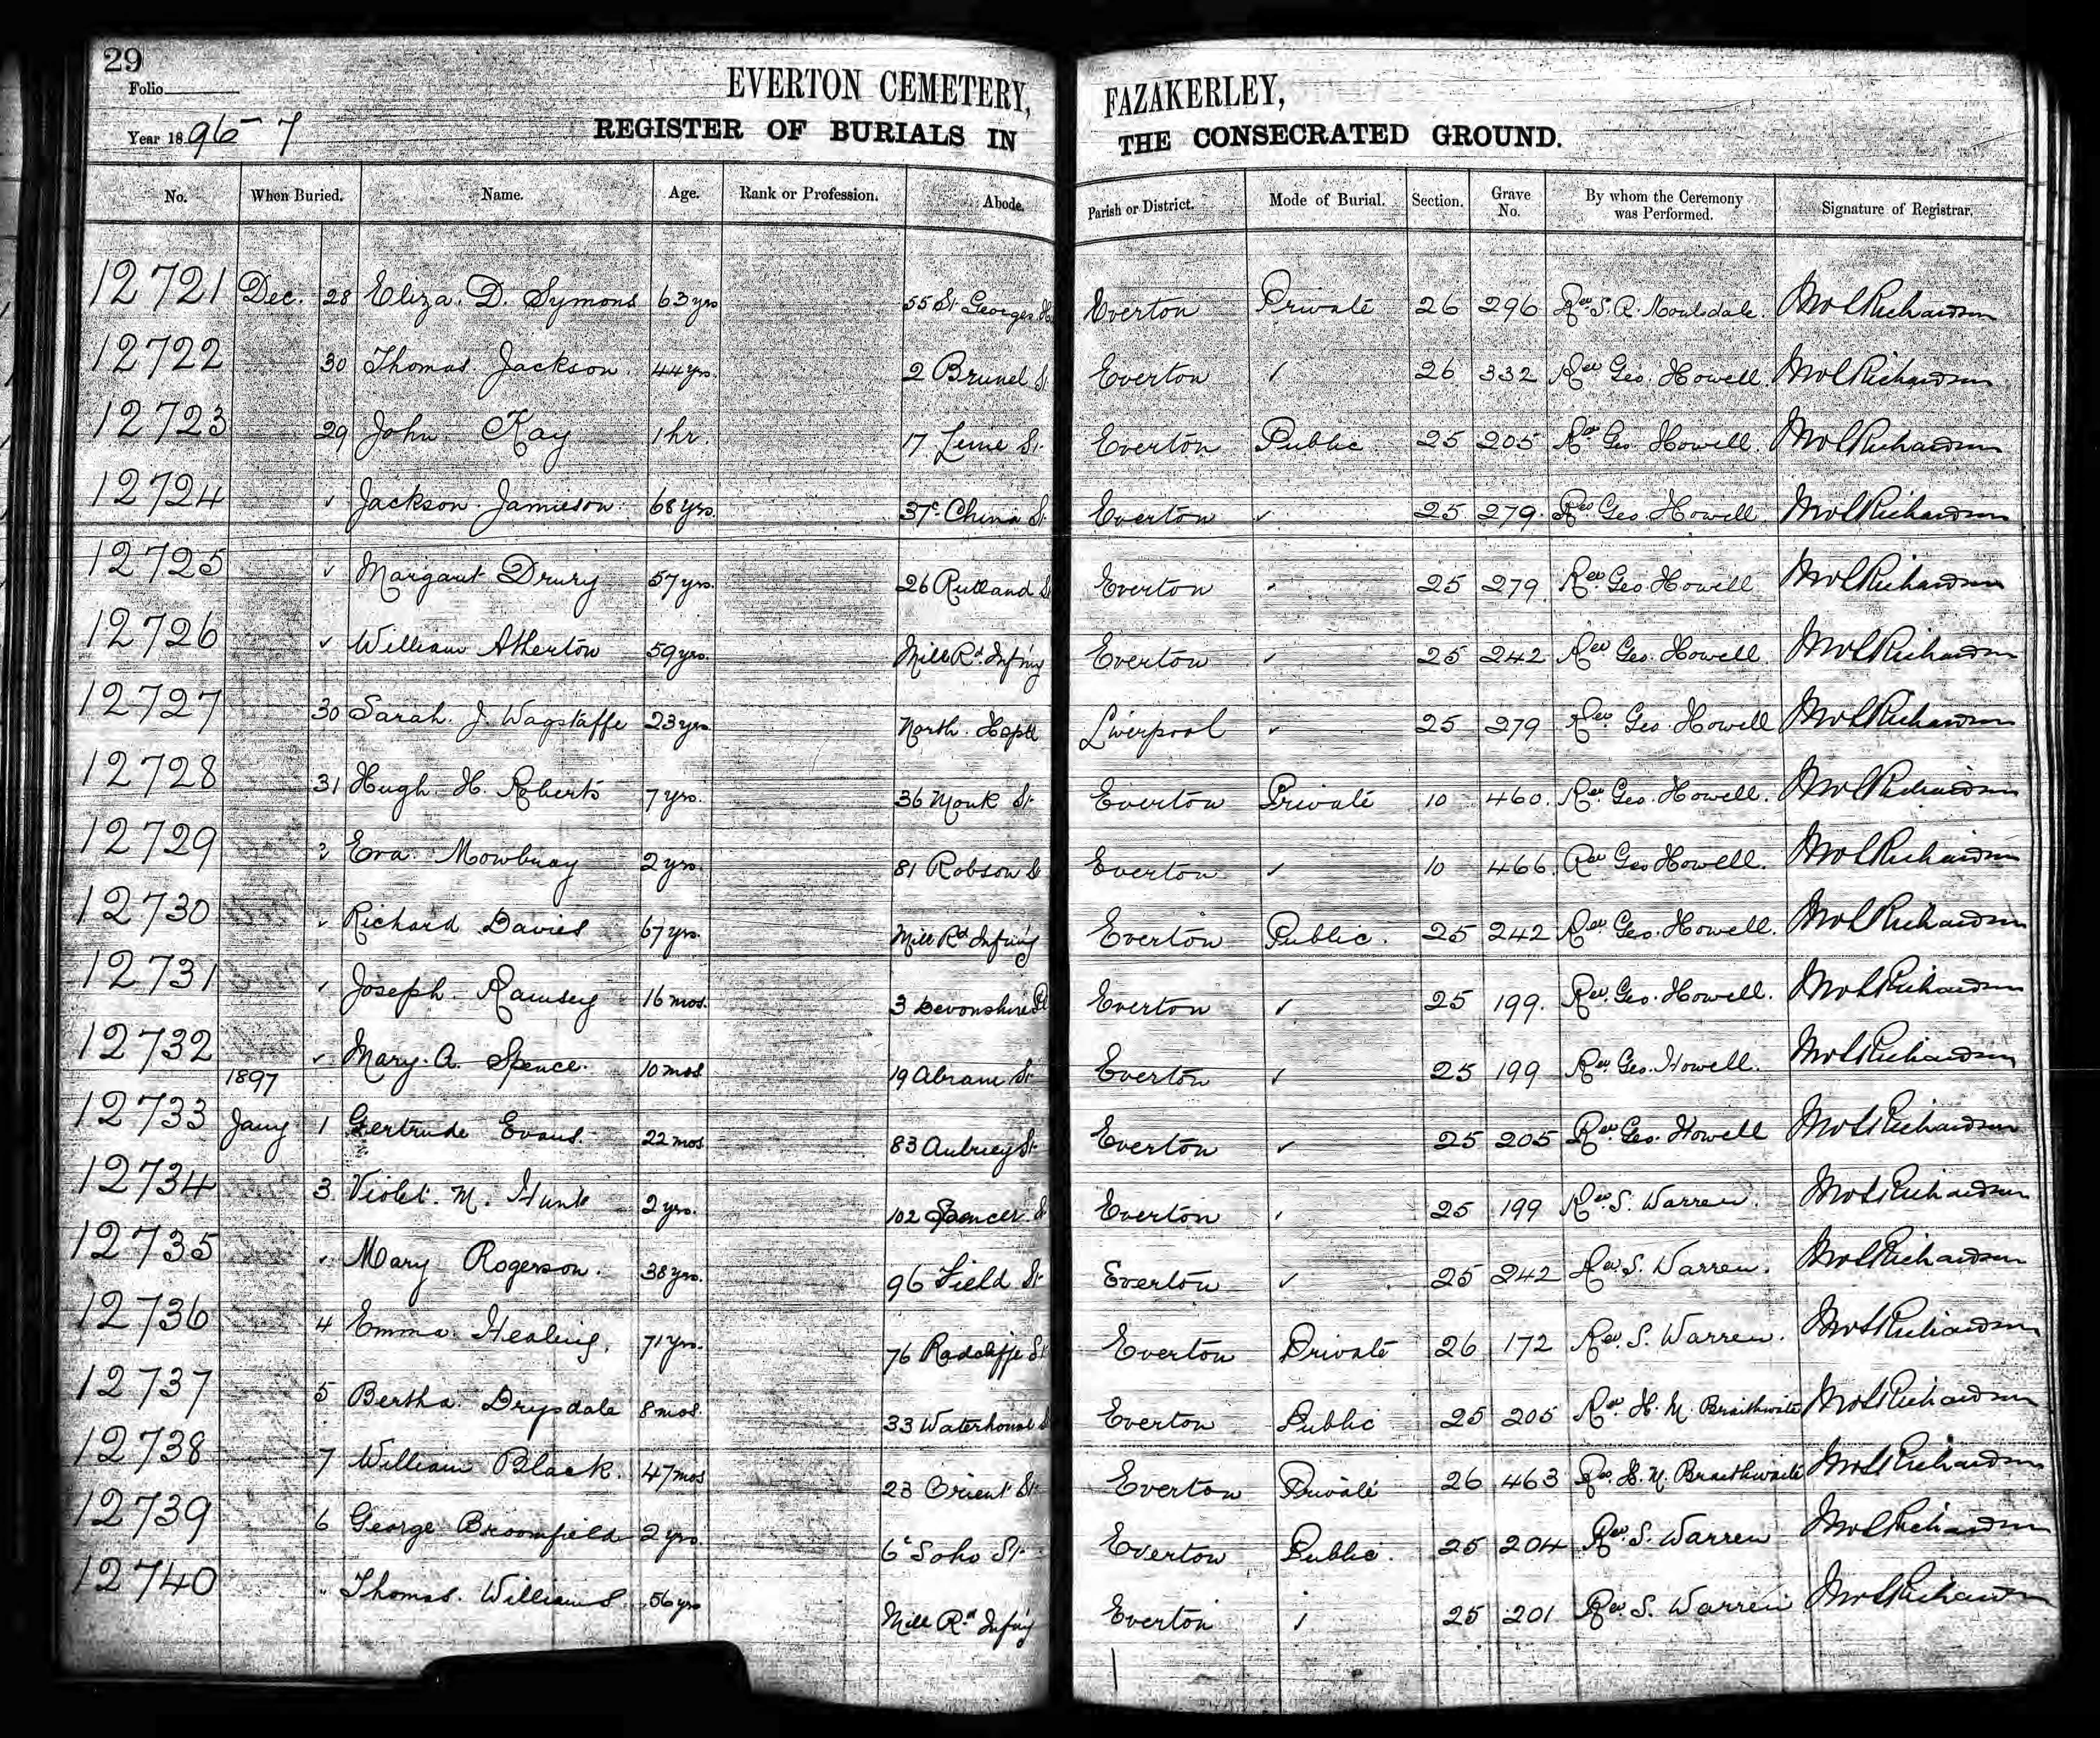 29
Folio
Year 1896-7
EVERTON CEMETERY, FAZAKERLEY,
REGISTER OF BURIALS IN THE CONSECRATED GROUND.
No. When Buried. Name. Age. Rank or Profession. Abode. Parish or District. Mode of Burial. Section. Grave No. By whom the Ceremony was Performed. Signature of Registrar.
12721 Dec. 28 Eliza. D. Symons 63 yrs 55 St Georges Everton Private 26 296 Rev S. R. Richardson
12722 30 Thomas Jackson. 44 yrs. 2 Brunel St Everton ✓ 26 332 Rev Geo. Howell Richardson
12723 29 John Kay 1 hr. 17 St Everton Public 25 205 Rev Geo Howell. Richardson
12724 ✓ Jackson Jamieson 68 yrs. 37c China St Everton ✓ 25 279 Rev Geo Howell Richardson
12725 ✓ Margaret Drury 57 yrs. 26 Rutland St Everton ✓ 25 279 Rev Geo Howell Richardson
12726 ✓ William Atherton 59 yrs. Mill Rd Infiry Everton ✓ 25 242 Rev Geo. Howell Richardson
12727 30 Sarah. J. Wagstaffe 23 yrs North. Hsptl Liverpool ✓ 25 279 Rev Geo Howell Richardson
12728 31 Hugh. H. Roberts 7 yrs. 36 Monk St Everton Private 10 460 Rev Geo. Howell. Richardson
12729 ✓ Eva Mowbray 2 yrs. 81 Robson St Everton ✓ 10 466 Rev Geo Howell. Richardson
12730 ✓ Richard Davies 67 yrs. Mill Rd Infiry Everton Public. 25 242 Rev Geo. Howell. Richardson
12731 ✓ Joseph Ramsey 16 mos. 3 Devonshire Pl Everton ✓ 25 199. Rev. Geo. Howell. Richardson
12732 ✓ Mary. A. Spence. 10 mos 19 Abram St Everton ✓ 25 199 Rev Geo. Howell. Richardson
1897
12733 Jany 1 Gertrude Evans. 22 mos 83 Aubrey St Everton ✓ 25 205 Rev. Geo. Howell Richardson
12734 3 Violet. M. Hunt 2 yrs. 102 Spencer St Everton ✓ 25 199 Rev. S. Warren. Richardson
12735 ✓ Mary Rogerson. 38 yrs. 96 Field St Everton ✓ 25 242 Rev. S. Warren. Richardson
12736 4 Emma Healing. 71 yrs. 76 Radcliffe St Everton Private 26 172 Rev. S. Warren. Richardson
12737 5 Bertha. Drysdale 8 mos. 33 Waterhouse St Everton Public 25 205 Rev. H. M. Braithwaite Richardson
12738 7 William Black. 47 mos 23 Orient St Everton Private 26 463 Rev. H. M. Braithwaite Richardson
12739 6 George Broomfield 2 yrs. 6c Soho St Everton Public. 25 204 Rev. S. Warren Richardson
12740 " Thomas. Williams 56 yrs Mill Rd Infiry Everton ✓ 25 201 Rev. S. Warren Richardson